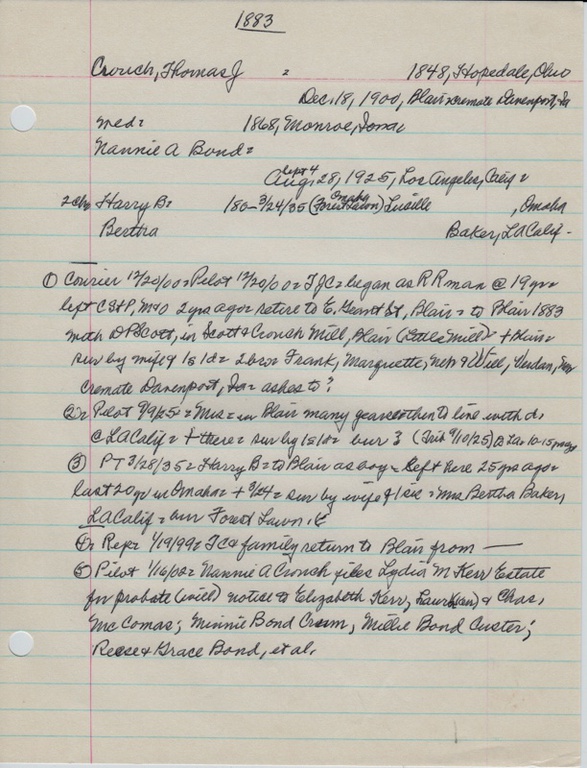 1883
Crouch, Thomas J = 1848, Hopedale, Ohio
Dec. 18, 1900, Blair = cremate Davenport, Ia
med = 1868, Monroe, Iowa
Nannie A Bond =
Sept 4
Aug. 28, 1925, Los Angeles, Calif =
2 ch = Harry B = 180- 3/24/35 (Forest Lawn) Omaha Lucille , Omaha
Bertha Baker, LA Calif -
① Courier 12/20/00 = Pilot 12/20/00 = TJC = began as RR man @ 19 yrs =
left C St P, M & O 2 yrs ago = retire to E. Grant St, Blair = to Blair 1883
with DP Scott, in Scott & Crouch Mill, Blair + Blair =
sur by wife & 1s 1d = 2 bros = Frank, Marquette, Neb & Will,
cremate Davenport, Ia = ashes to ?
② = Pilot 9/9/25 = Mrs = in Blair many years = then to live with d,
@ LA Calif = + there = sur by 1s 1d = bur ? (Trib 9/10/25)
③ PT 3/28/35 = Harry B = to Blair as boy = left here 25 yrs ago =
last 20 yr in Omaha = + 3/24 = sur by wife & 1 sis = Mrs Bertha Baker,
LA Calif = bur Forest Lawn
④ = Rep = 1/19/99 = TC & family return to Blair from —
⑤ Pilot 1/16/02 = Nannie A Crouch files Lydia M Kerr Estate
for probate (will) notice to Elizabeth Kerr, & Chas.
McComas; Minnie Bond Crum, Millie Bond Custer;
Reese & Grace Bond, et al.